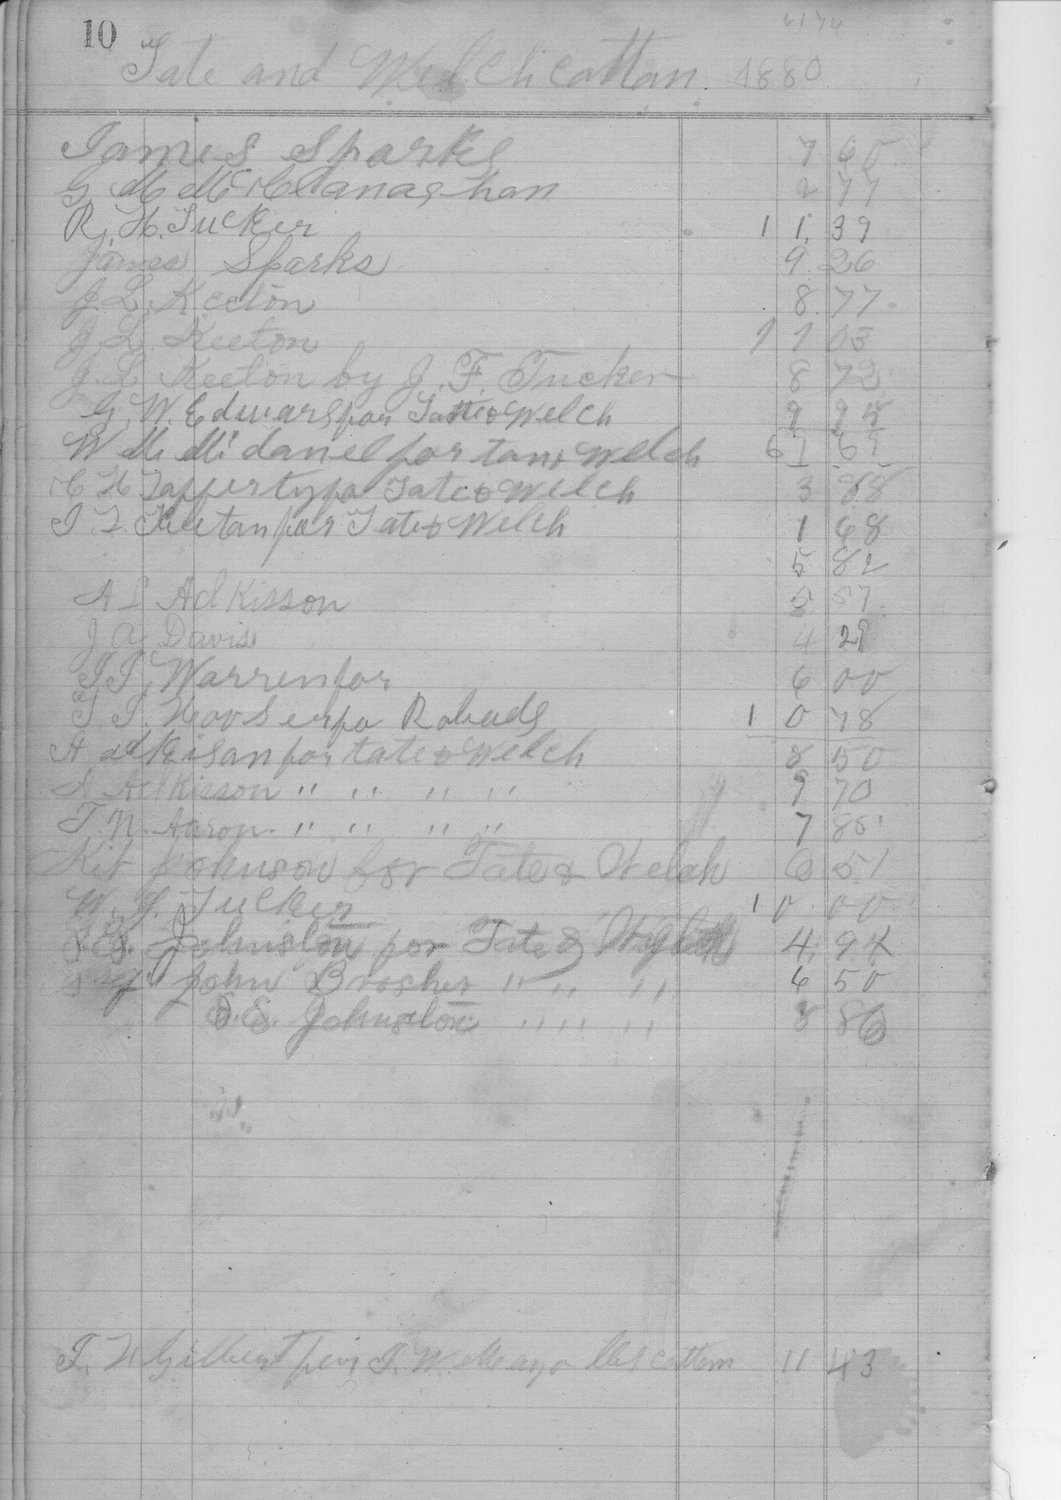 10
Tate and Welch cottan. 1880.
James Sparks 7 90
G M McClanaghan 9 77
R. H. Tucker 11. 39
James Sparks 9 26
J. L. Keeton 8. 77.
J L Keeton 11 03
J. L Keeton by J. F. Tucker 8 72
G. W. Edwars for Tate & Welch 9 94
W M Mc daniel for tate & Welch 67 65
C H Taffertypo Tate & Welch 3 88
J L Keetan for Tate & Welch 1 68
5 82
A L Adkisson 5 57
J A Davis 4 29
J J Warren for 6 00
T J. Hooserpo Robuds 10 78
A adkisan for tate & Welch 8 50
A Adkisson " " " " 9 70
T. N. Aaron. " " " " 7 85
Kit Johnson for Tate & Welch 6 51
W. J. Tucker 10. 00
Johnston for Tate & 4. 94
John Brasher " " " 6 50
S. E. Johnston " " " 8 86
J. W. Mayo cottom 11 43